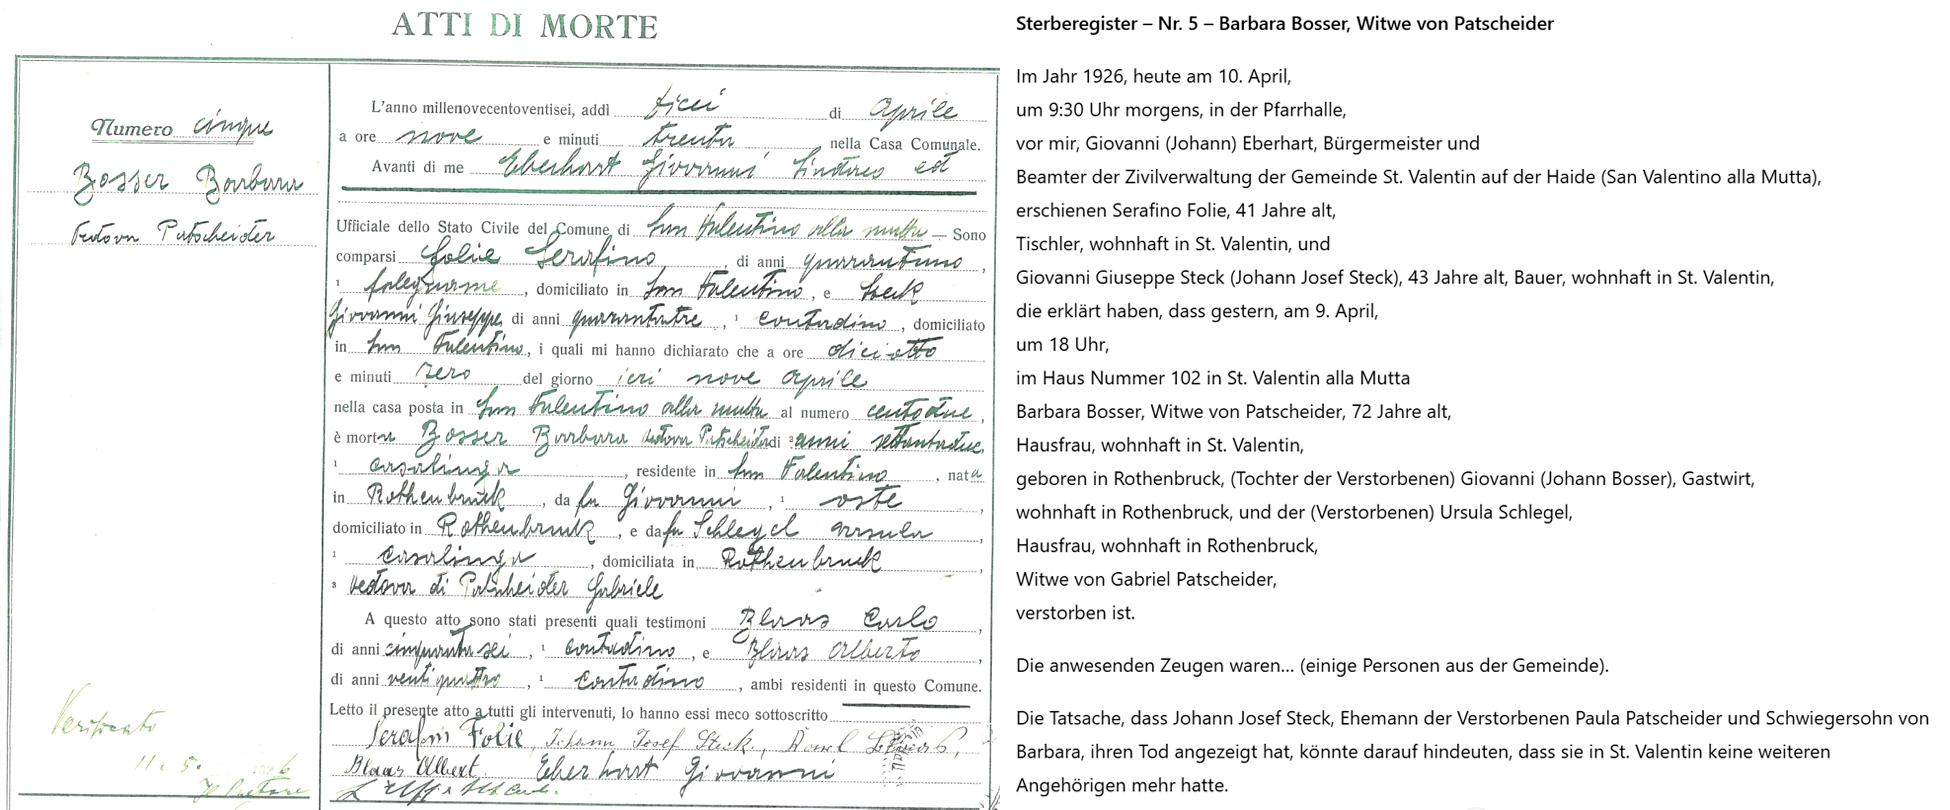 ATTI DI MORTE
Numero cinque
Bosser Barbara
vedova Patscheider
L'anno millenovecentoventisei, addì dieci di Aprile
a ore nove e minuti trenta nella Casa Comunale.
Avanti di me Eberhart Giovanni Sindaco ed
Ufficiale dello Stato Civile del Comune di San Valentino alla mutta — Sono
comparsi Folie Serafino, di anni quarantuno,
¹ falegname, domiciliato in San Valentino, e Steck
Giovanni Giuseppe di anni quarantatre, ¹ contadino, domiciliato
in San Valentino, i quali mi hanno dichiarato che a ore diciotto
e minuti zero del giorno ieri nove Aprile
nella casa posta in San Valentino alla mutta al numero centodue,
è morta Bosser Barbara vedova Patscheider di ² anni settantadue,
¹ casalinga, residente in San Valentino, nata
in Rothenbruck, da fu Giovanni, ¹ oste,
domiciliato in Rothenbruck, e da fu Schlegel Ursula
¹ casalinga, domiciliata in Rothenbruck,
³ vedova di Patscheider Gabriele
A questo atto sono stati presenti quali testimoni Blaas Carlo,
di anni cinquantasei, ¹ contadino, e Blaas Alberto
di anni ventiquattro, ¹ Contadino, ambi residenti in questo Comune.
Letto il presente atto a tutti gli intervenuti, lo hanno essi meco sottoscritto
Serafin Folie, Johann Josef Steck, Karl Blaas,
Blaas Albert Eberhart Giovanni
Verificato
11. 5.
Il Pretore
Sterberegister – Nr. 5 – Barbara Bosser, Witwe von Patscheider
Im Jahr 1926, heute am 10. April,
um 9:30 Uhr morgens, in der Pfarrhalle,
vor mir, Giovanni (Johann) Eberhart, Bürgermeister und
Beamter der Zivilverwaltung der Gemeinde St. Valentin auf der Haide (San Valentino alla Mutta),
erschienen Serafino Folie, 41 Jahre alt,
Tischler, wohnhaft in St. Valentin, und
Giovanni Giuseppe Steck (Johann Josef Steck), 43 Jahre alt, Bauer, wohnhaft in St. Valentin,
die erklärt haben, dass gestern, am 9. April,
um 18 Uhr,
im Haus Nummer 102 in St. Valentin alla Mutta
Barbara Bosser, Witwe von Patscheider, 72 Jahre alt,
Hausfrau, wohnhaft in St. Valentin,
geboren in Rothenbruck, (Tochter der Verstorbenen) Giovanni (Johann Bosser), Gastwirt,
wohnhaft in Rothenbruck, und der (Verstorbenen) Ursula Schlegel,
Hausfrau, wohnhaft in Rothenbruck,
Witwe von Gabriel Patscheider,
verstorben ist.
Die anwesenden Zeugen waren... (einige Personen aus der Gemeinde).
Die Tatsache, dass Johann Josef Steck, Ehemann der Verstorbenen Paula Patscheider und Schwiegersohn von
Barbara, ihren Tod angezeigt hat, könnte darauf hindeuten, dass sie in St. Valentin keine weiteren
Angehörigen mehr hatte.